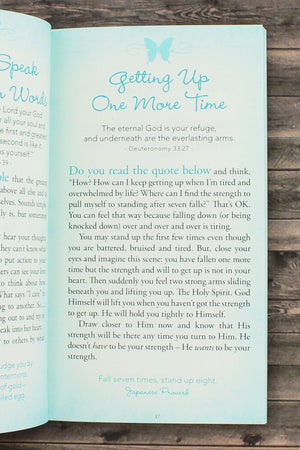 Speak
Words
Lord your God
all your soul and
first and greatest
yourself."
39 -
that the greatest
above all else and
Sounds simple
is, but sometimes
hear your thoughts
they can't know what
put action to your
can see your
to think about how
What says "I care"
to another. So
out and to try to
speak into her heart.
to others by what
judge you by
intentions
of gold –
boiled egg.
Getting Up
One More Time
The eternal God is your refuge,
and underneath are the everlasting arms.
- Deuteronomy 33:27
Do you read the quote below and think,
"How? How can I keep getting up when I'm tired and
overwhelmed by life? Where can I find the strength to
pull myself to standing after seven falls?" That's OK.
You can feel that way because falling down (or being
knocked down) over and over and over is tiring.
You may stand up the first few times even though
you are battered, bruised and tired. But, close your
eyes and imagine this scene: you have fallen one more
time but the strength and will to get up is not in your
heart. Then suddenly you feel two strong arms sliding
beneath you and lifting you up. The Holy Spirit. God
Himself will lift you when you haven't got the strength
to get up. He will hold you tightly to Himself.
Draw closer to Him now and know that His
strength will be there any time you turn to Him. He
doesn't have to be your strength – He wants to be your
strength.
Fall seven times, stand up eight.
Japanese Proverb
17